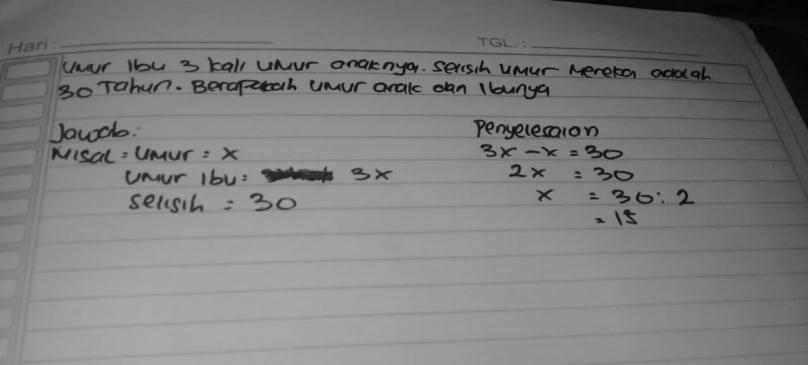 Hari:
TGL.:
Umur Ibu 3 kali umur anaknya. Selisih umur mereka adalah
30 Tahun. Berapakah umur anak dan Ibunya
Jawab:
Misal = Umur = x
Umur Ibu = 3x
Selisih = 30
Penyelesaian
3x - x = 30
2x = 30
x = 30 : 2
= 15